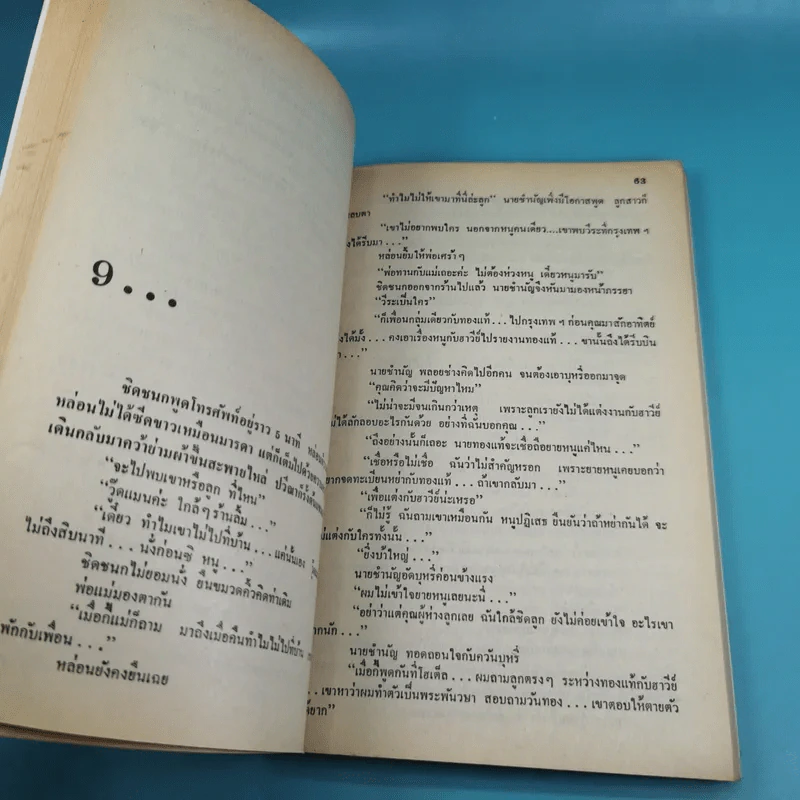 9...
ชิดชนกพูดโทรศัพท์อยู่ราว 5 นาที
หล่อนไม่ได้ซีดขาวเหมือนมารดา แต่ก็เต็มไปด้วย
เดินกลับมาคว้าย่ามผ้าขึ้นสะพายไหล่ ปวีณารั้ง
“จะไปพบเขาหรือลูก ที่ไหน”
“วู๊ดแมนค่ะ ใกล้ๆ ร้านลิ้ม...”
“เดี๋ยว ทำไมเขาไม่ไปที่บ้าน...แค่นั้นเอง
ไม่ถึงสิบนาที...นั่งก่อนซิ หนู...”
ชิดชนกไม่ยอมนั่ง ยืนขมวดคิ้วคิดท่าเดิม
พ่อแม่มองตากัน
“เมื่อกี้แม่ก็ถาม มาถึงเมื่อคืนทำไมไม่ไปที่บ้าน
พักกับเพื่อน...”
หล่อนยังคงยืนเฉย
63
“ทำไมไม่ให้เขามาที่นี่ล่ะลูก” นายชำนัญเพิ่งมีโอกาสพูด ลูกสาวก็
บตา
“เขาไม่อยากพบใคร นอกจากหนูคนเดียว....เขาพบวีระที่กรุงเทพ ฯ
ได้รีบมา...”
หล่อนยิ้มให้พ่อเศร้าๆ
“พ่อทานกับแม่เถอะค่ะ ไม่ต้องห่วงหนู เดี๋ยวหนูมารับ”
ชิดชนกออกจากร้านไปแล้ว นายชำนัญจึงหันมามองหน้าภรรยา
“วีระเป็นใคร”
“ก็เพื่อนกลุ่มเดียวกับทองแท้...ไปกรุงเทพ ฯ ก่อนคุณมาสักอาทิตย์
ได้มั้ง...คงเอาเรื่องหนูกับฮาวีย์ไปรายงานทองแท้...ขานั้นถึงได้รีบบิน
...”
นายชำนัญ พลอยช่างคิดไปอีกคน จนต้องเอาบุหรี่ออกมาจุด
“คุณคิดว่าจะมีปัญหาไหม”
“ไม่น่าจะมีจนเกินกว่าเหตุ เพราะลูกเรายังไม่ได้แต่งงานกับฮาวีย์
ได้ลักลอบอะไรกันด้วย อย่างที่ฉันบอกคุณ...”
“ถึงอย่างนั้นก็เถอะ นายทองแท้จะเชื่อถือยายหนูแค่ไหน...”
“เชื่อหรือไม่เชื่อ ฉันว่าไม่สำคัญหรอก เพราะยายหนูเคยบอกว่า
จดทะเบียนหย่ากับทองแท้...ถ้าเขากลับมา...”
“เพื่อแต่งกับฮาวีย์น่ะเหรอ”
“ก็ไม่รู้ ฉันถามเขาเหมือนกัน หนูปฏิเสธ ยืนยันว่าถ้าหย่ากันได้ จะ
แต่งกับใครทั้งนั้น...”
“ยิ่งบ้าใหญ่...”
นายชำนัญอัดบุหรี่ค่อนข้างแรง
“ผมไม่เข้าใจยายหนูเลยนะนี่...”
“อย่าว่าแต่คุณผู้ห่างลูกเลย ฉันใกล้ชิดลูก ยังไม่ค่อยเข้าใจ อะไรเขา
นัก...”
นายชำนัญ ทอดถอนใจกับควันบุหรี่
“เมื่อกี้พูดกันที่โฮเต็ล...ผมถามลูกตรงๆ ระหว่างทองแท้กับฮาวีย์
...เขาหาว่าผมทำตัวเป็นพระพันวษา สอบถามวันทอง...เขาตอบให้ตายตัว
ยาก”